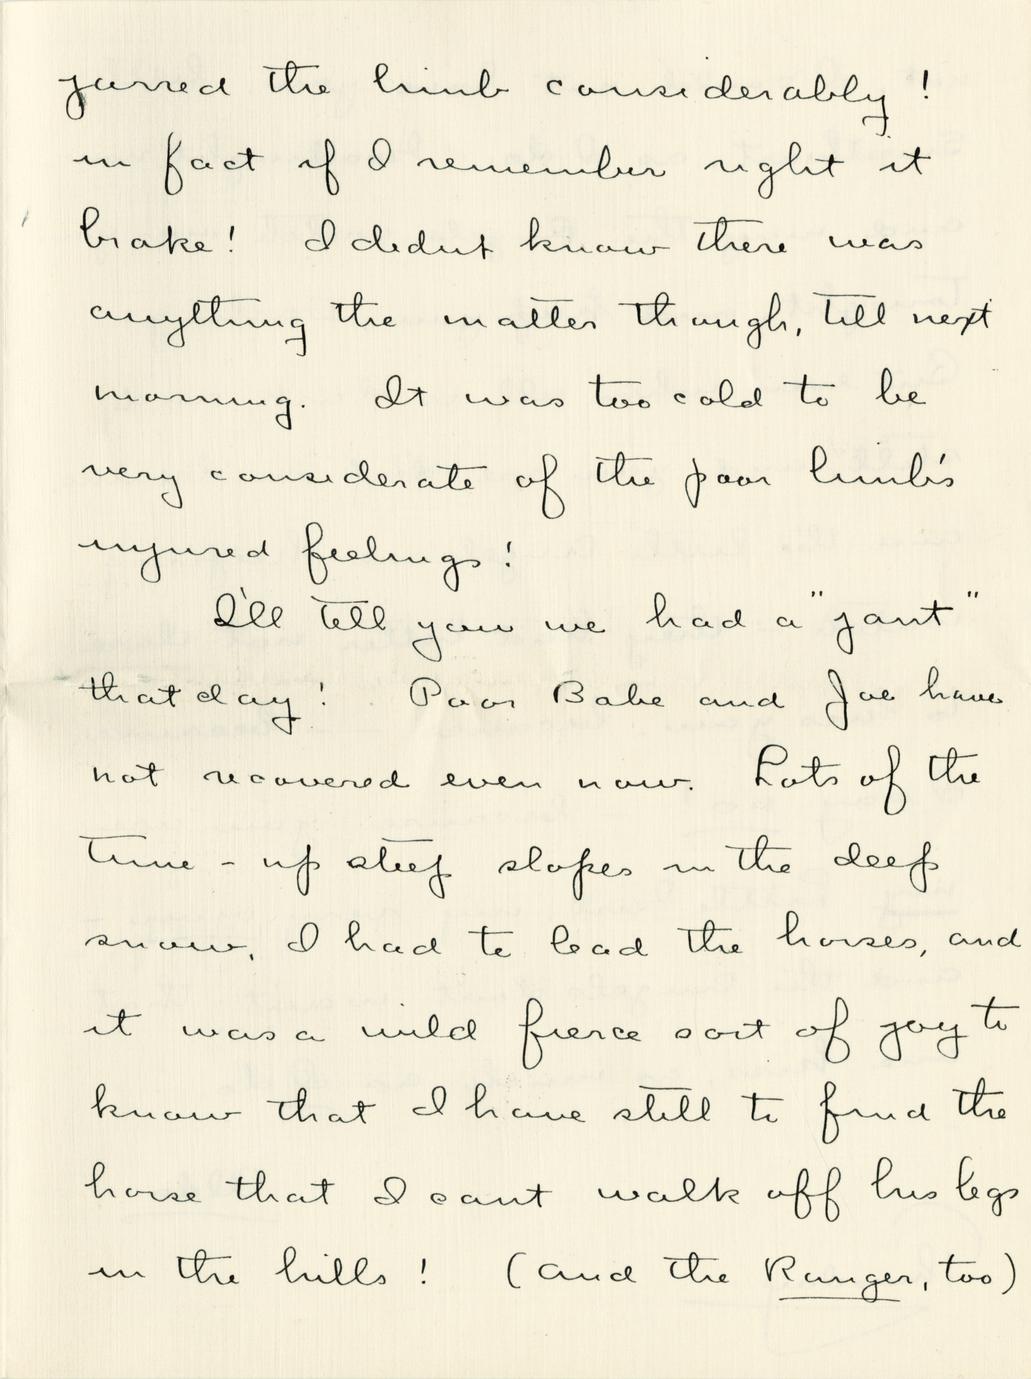 jarred the limb considerably!
in fact if I remember right it
brake! I didnt know there was
anything the matter though, till next
morning. It was too cold to be
very considerate of the poor limb's
injured feelings!
I'll tell you we had a "jant"
that day! Poor Babe and Joe have
not recovered even now. Lots of the
time - up steep slopes in the deep
snow, I had to lead the horses, and
it was a wild fierce sort of joy to
know that I have still to find the
horse that I cant walk off his legs
in the hills! (and the Ranger, too)